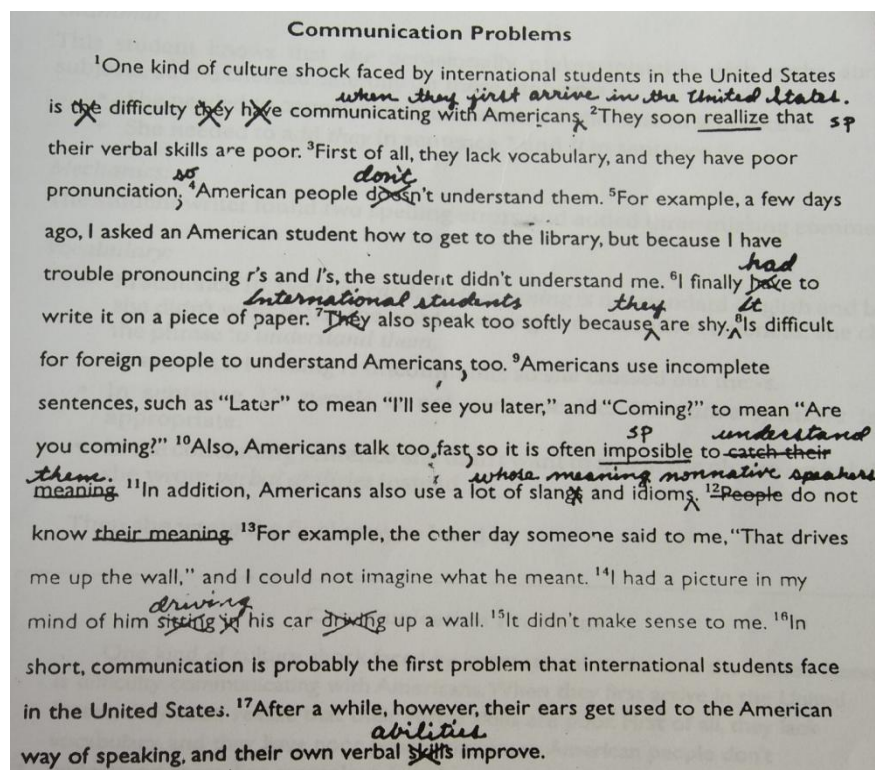 Communication Problems
¹One kind of culture shock faced by international students in the United States
when they first arrive in the United States.
is the difficulty they have communicating with Americans. ²They soon reallize that sp
their verbal skills are poor. ³First of all, they lack vocabulary, and they have poor
so don't
pronunciation, ⁴American people doesn't understand them. ⁵For example, a few days
ago, I asked an American student how to get to the library, but because I have
had
trouble pronouncing r's and l's, the student didn't understand me. ⁶I finally have to
International students they It
write it on a piece of paper. ⁷They also speak too softly because are shy. ⁸Is difficult
for foreign people to understand Americans, too. ⁹Americans use incomplete
sentences, such as “Later” to mean “I'll see you later,” and “Coming?” to mean “Are
sp understand
you coming?” ¹⁰Also, Americans talk too fast, so it is often imposible to catch their
them. whose meaning nonnative speakers
meaning. ¹¹In addition, Americans also use a lot of slangs and idioms. ¹²People do not
know their meaning. ¹³For example, the other day someone said to me, “That drives
me up the wall,” and I could not imagine what he meant. ¹⁴I had a picture in my
driving
mind of him sitting in his car driving up a wall. ¹⁵It didn't make sense to me. ¹⁶In
short, communication is probably the first problem that international students face
in the United States. ¹⁷After a while, however, their ears get used to the American
abilities
way of speaking, and their own verbal skills improve.